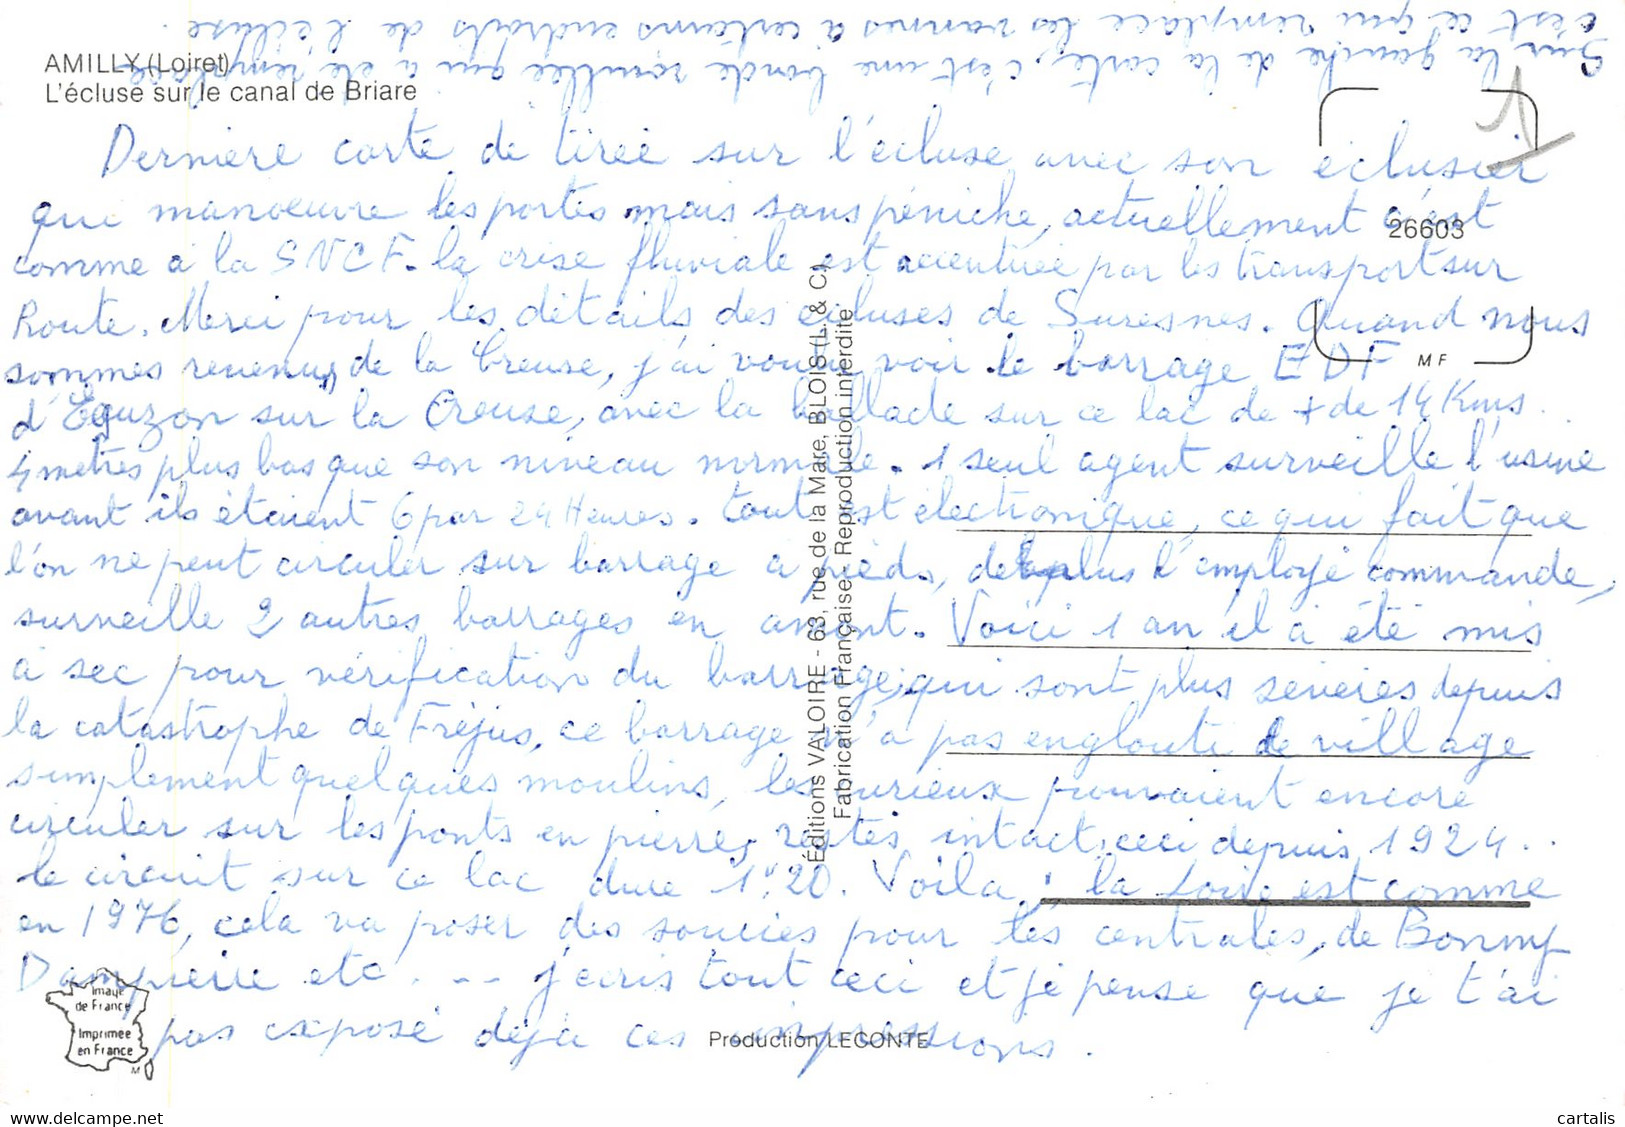 Sur la gauche de la carte, c'est une bonde rouillée qui a été remplacée
c'est ce qui remplace les vannes à certains endroits de l'écluse
AMILLY (Loiret)
L'écluse sur le canal de Briare
Derniere carte de tirée sur l'écluse avec son éclusier
que manoeuvre les portes mais sans péniche, actuellement c'est
26603
comme à la SNCF. la crise fluviale est accentuée par les transport sur
Route. Merci pour les détails des écluses de Suresnes. Quand nous
sommes revenus de la Creuse, j'ai voulu voir le barrage EDF
MF
d'Eguzon sur la Creuse, avec la ballade sur ce lac de + de 14 Kms.
4 metres plus bas que son niveau normale. 1 seul agent surveille l'usine
avant ils étaient 6 par 24 Heures. tout est électronique, ce qui fait que
l'on ne peut circuler sur barrage a pieds, de plus l'employé commande,
surveille 2 autres barrages en amont. Voici 1 an il a été mis
a sec pour vérification du barrage, qui sont plus sévères depuis
la catastrophe de Fréjus, ce barrage n'a pas englouti de village
simplement quelques moulins, les curieux pouvaient encore
circuler sur les ponts en pierres restés intact, ceci depuis 1924..
le circuit sur ce lac dure 1H20. Voila, la Loire est comme
en 1976, cela va poser des soucies pour les centrales, de Bonny
Dampierre etc. --- j'ecris tout ceci et je pense que je t'ai
pas exposé déjà ces impressions.
Éditions VALOIRE - 63, rue de la Mare, BLOIS (L. & C)
Fabrication Française Reproduction interdite
Image
de France
Imprimée
en France
Production LECONTE
cartalis